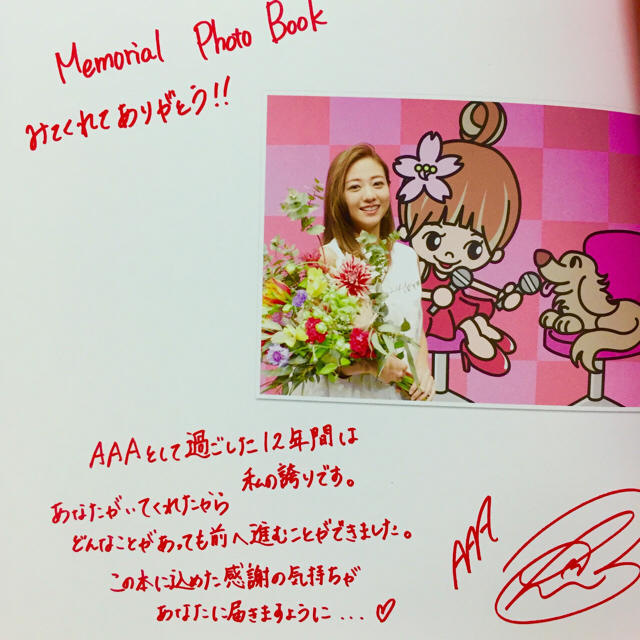 Memorial Photo Book
みてくれてありがとう!!
AAAとして過ごした12年間は
私の誇りです。
あなたがいてくれたから
どんなことがあっても前へ進むことができました。
この本に込めた感謝の気持ちが
あなたに届きますように...♡
AAA